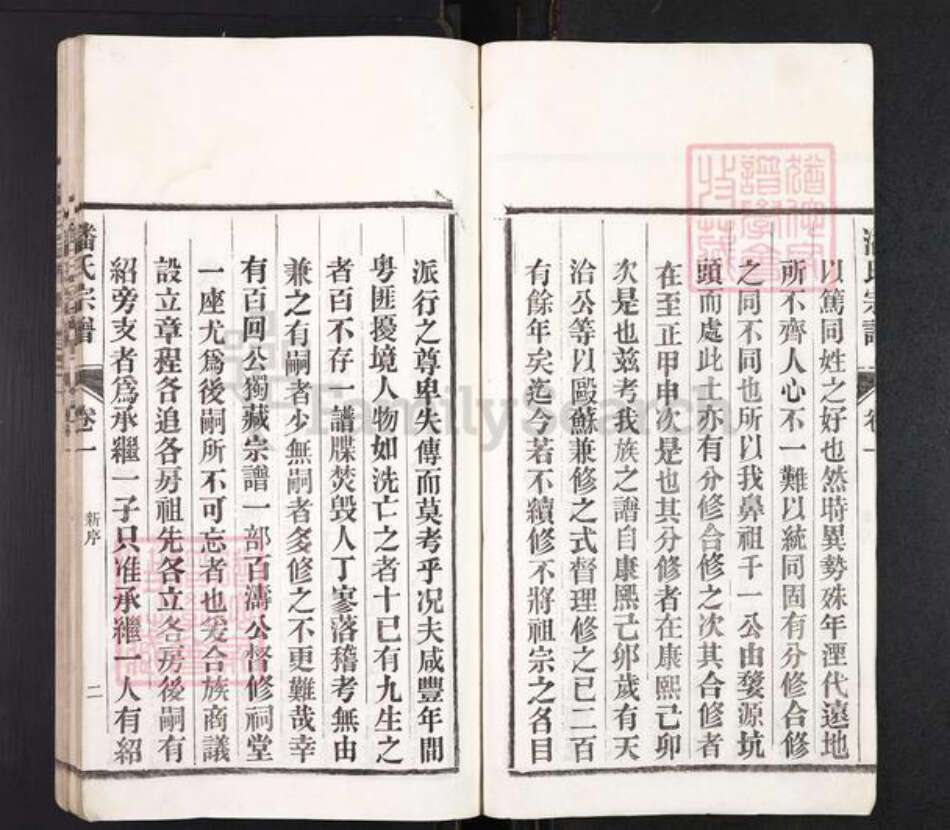 潘氏宗譜
卷一
以篤同姓之好也然時異勢殊年湮代遠地
所不齊人心不一難以統同固有分修合修
之同不同也所以我鼻祖千一公由婺源坑
頭而處此土亦有分修合修之次其合修者
在至正甲申次是也其分修者在康熙己卯
次是也茲考我族之譜自康熙己卯歲有天
治公等以歐蘇兼修之式督理修之已二百
有餘年矣迄今若不續修不將祖宗之名目
派行之尊卑失傳而莫考乎况夫咸豐年間
粤匪擾境人物如洗亡之者十已有九生之
者百不存一譜牒焚毁人丁寥落稽考無由
兼之有嗣者少無嗣者多修之不更難哉幸
有百回公獨藏宗譜一部百濤公督修祠堂
一座尤爲後嗣所不可忘者也爰合族商議
設立章程各追各房祖先各立各房後嗣有
紹旁支者爲承繼一子只准承繼一人有紹
潘氏宗譜
卷一
新序
二
FamilySearch